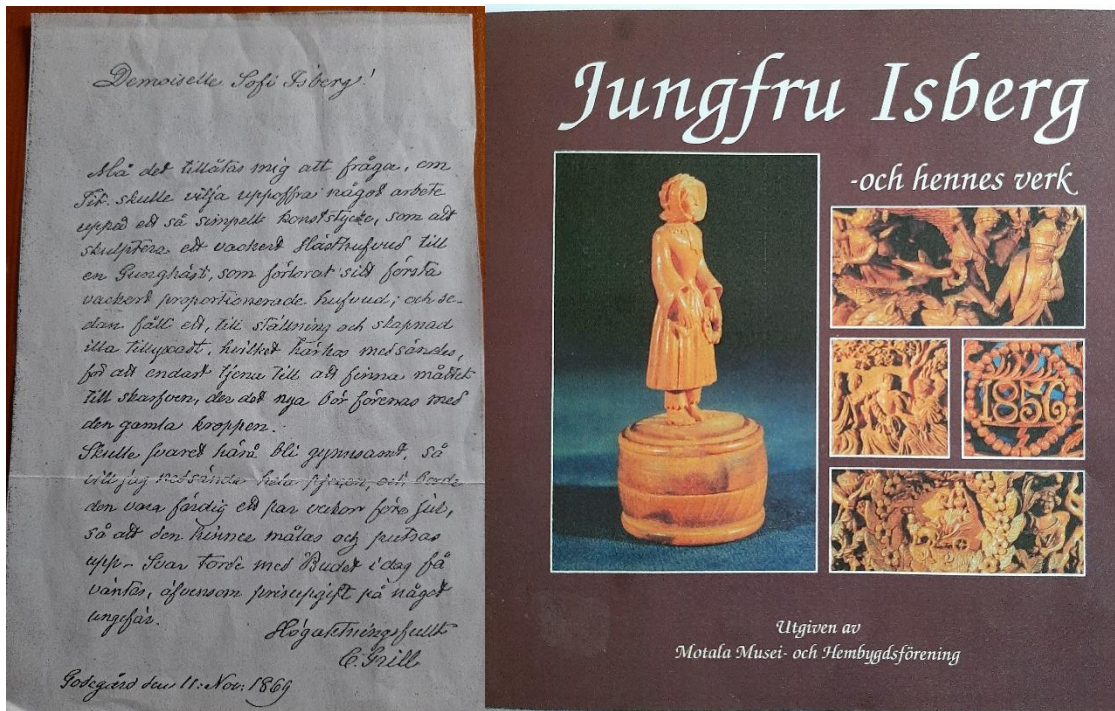 Demoiselle Sofi Isberg!
Må det tillåtas mig att fråga, om
Tit. skulle vilja uppoffra något arbete
uppå ett så simpelt konststycke, som att
skulptera ett vackert Hästhufvud till
en Gunghäst, som förlorat sitt första
vackert proportionerade hufvud; och se-
dan fått ett, till ställning och skapnad
illa tillyxadt, hvilket härhos medsändes,
för att endast tjena till att finna måttet
till skarfven, der det nya bör förenas med
den gamla kroppen.
Skulle svaret härå bli gynnsamt, så
vill jag nedsända hela pjesen, och borde
den vara färdig ett par veckor före jul,
så att den hinner målas och putsas
upp – Svar torde med Budet i dag få
väntas, äfvensom prisuppgift på något
ungefär.
Högaktningsfullt
C. Grill
Godegård den 11: Nov: 1869
Jungfru Isberg
-och hennes verk
1856
Utgiven av
Motala Musei- och Hembygdsförening